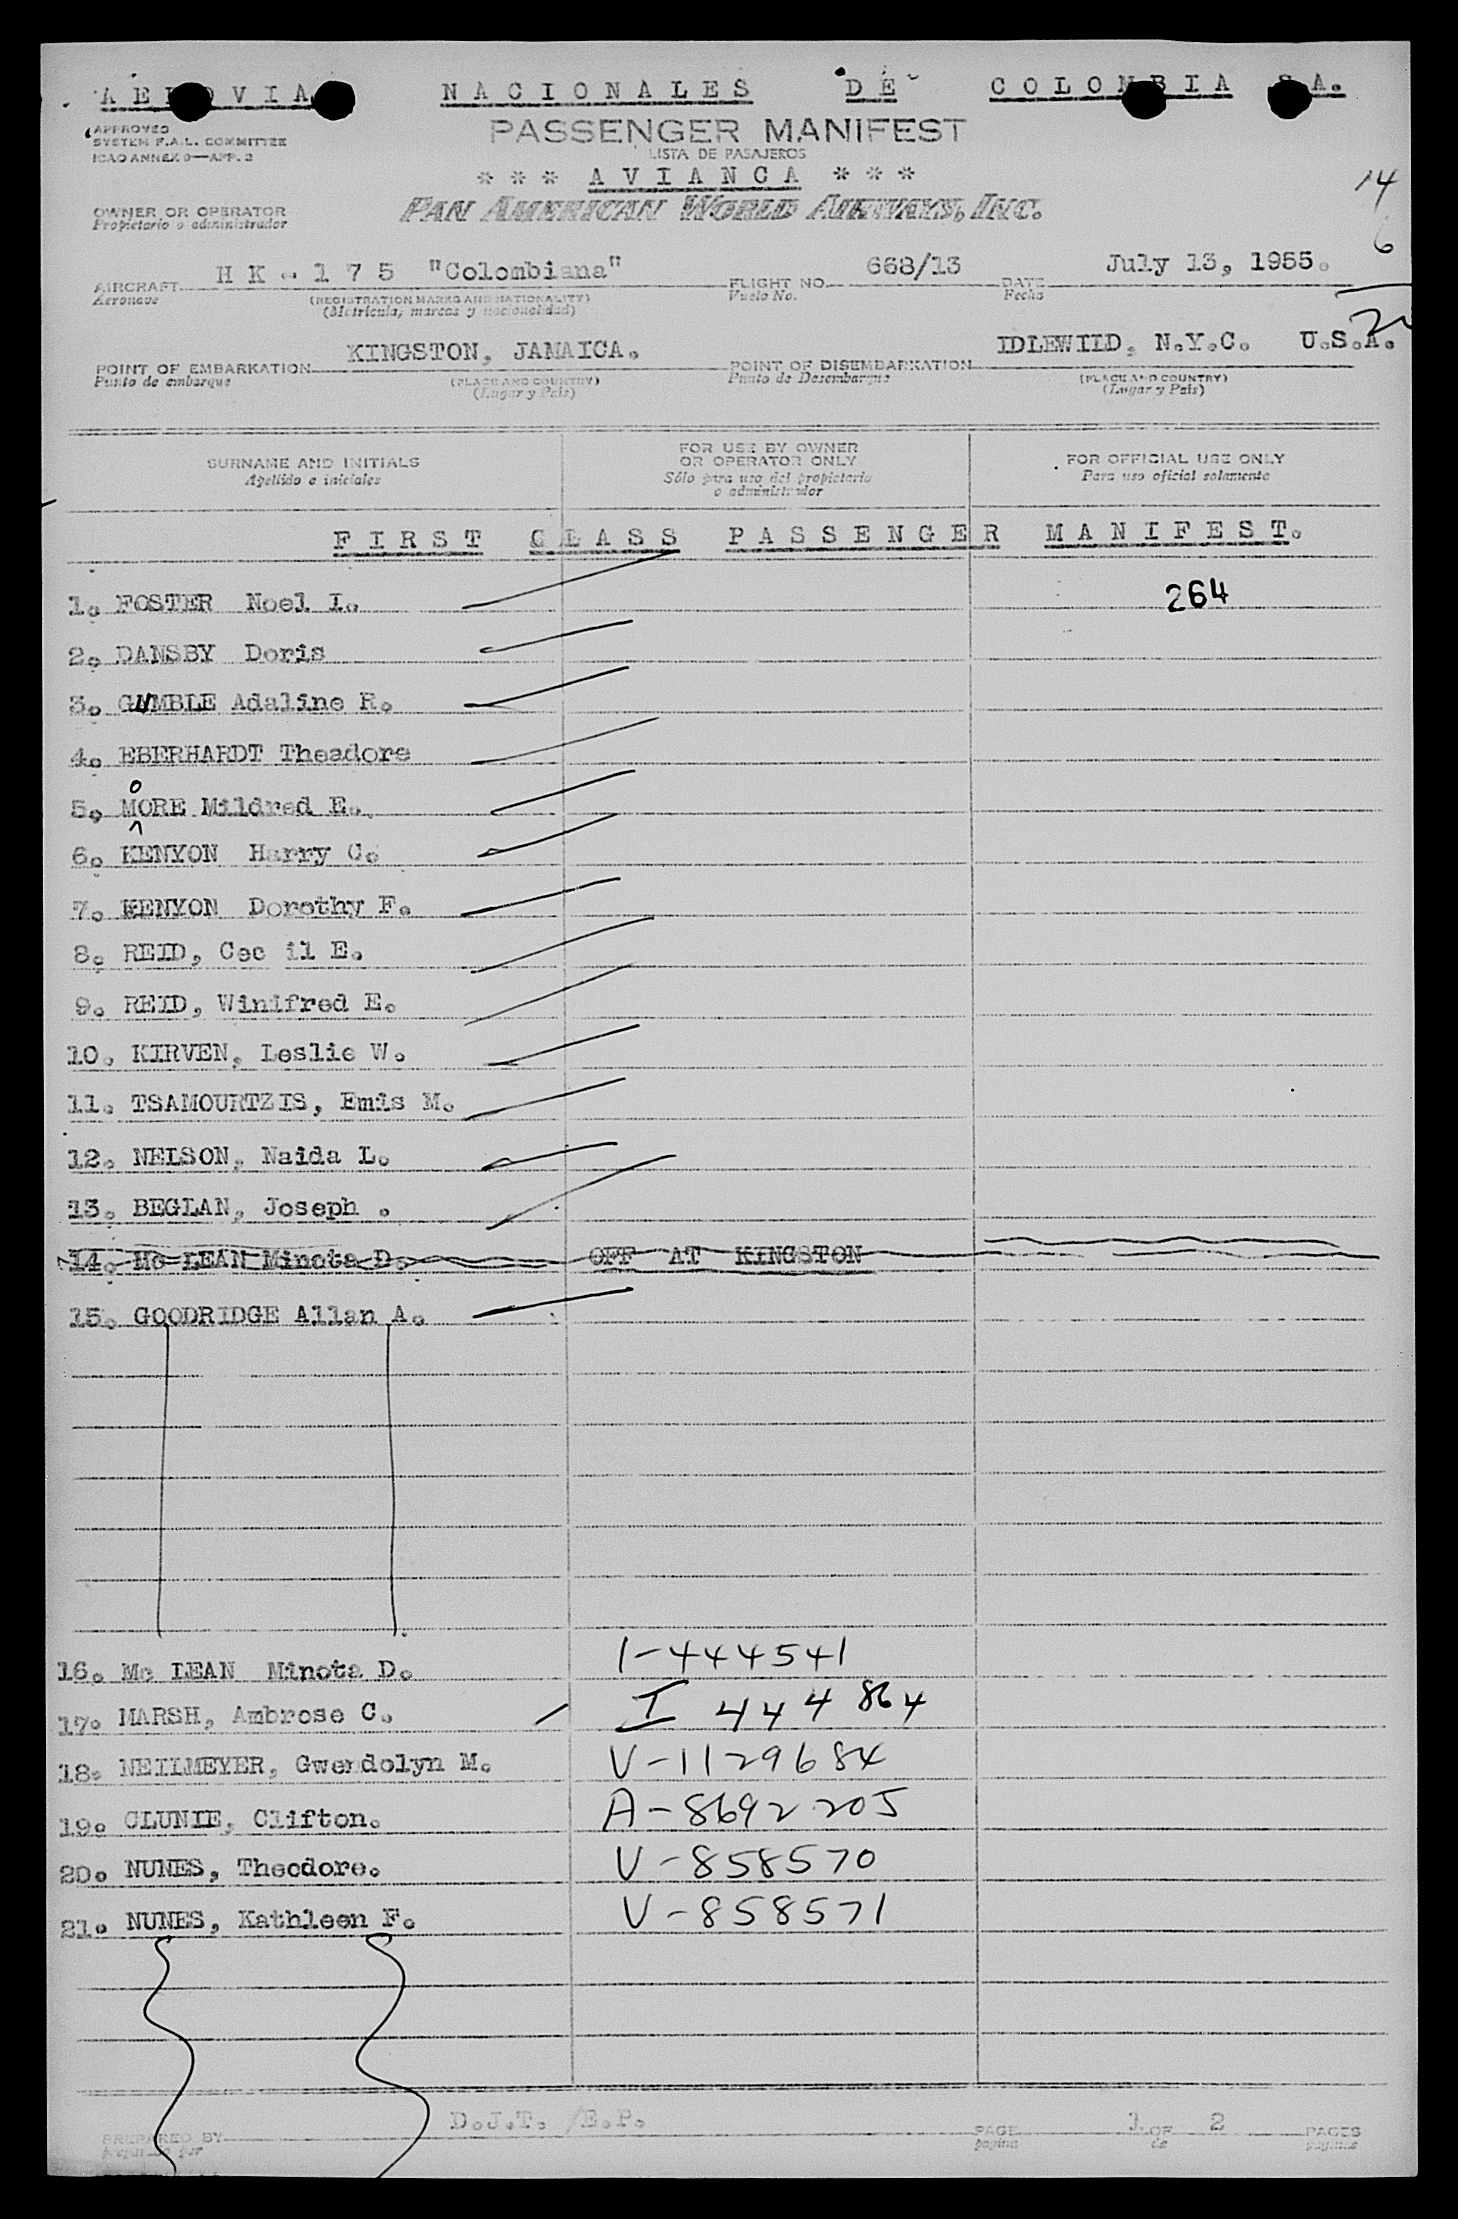 AEROVIAS NACIONALES DE COLOMBIA S.A.
APPROVED
SYSTEM F.A.L. COMMITTEE
ICAO ANNEX 9—APP. 2
PASSENGER MANIFEST
LISTA DE PASAJEROS
* * * AVIANCA * * *
14
OWNER OR OPERATOR
Propietario o administrador
PAN AMERICAN WORLD AIRWAYS, INC.
6
AIRCRAFT HK-175 "Colombiana" FLIGHT NO. 668/13 DATE July 13, 1955.
Aeronave (REGISTRATION MARKS AND NATIONALITY) Vuelo No. Fecha
(Matrícula, marcas y nacionalidad)
POINT OF EMBARKATION KINGSTON, JAMAICA. POINT OF DISEMBARKATION IDLEWILD, N.Y.C. U.S.A.
Punto de embarque (PLACE AND COUNTRY) Punto de Desembarque (PLACE AND COUNTRY)
(Lugar y País) (Lugar y País)
SURNAME AND INITIALS FOR USE BY OWNER OR OPERATOR ONLY FOR OFFICIAL USE ONLY
Apellido e iniciales Sólo para uso del propietario o administrador Para uso oficial solamente
FIRST CLASS PASSENGER MANIFEST.
1. FOSTER Noel I. 264
2. DANSBY Doris
3. GUMBLE Adaline R.
4. EBERHARDT Theadore
5. MOORE Mildred E.
6. KENYON Harry C.
7. KENYON Dorothy F.
8. REID, Cec il E.
9. REID, Winifred E.
10. KIRVEN, Leslie W.
11. TSAMOURTZIS, Emis M.
12. NELSON, Naida L.
13. BEGLAN, Joseph .
14. Mc LEAN Minota D. OFF AT KINGSTON
15. GOODRIDGE Allan A.
16. Mc LEAN Minota D. 1-444541
17. MARSH, Ambrose C. I 444864
18. NEILMEYER, Gwendolyn M. V-1129684
19. CLUNIE, Clifton. A-8692205
20. NUNES, Theodore. V-858570
21. NUNES, Kathleen F. V-858571
PREPARED BY D.J.T. /E.P. PAGE 1 OF 2 PAGES
preparado por página de páginas